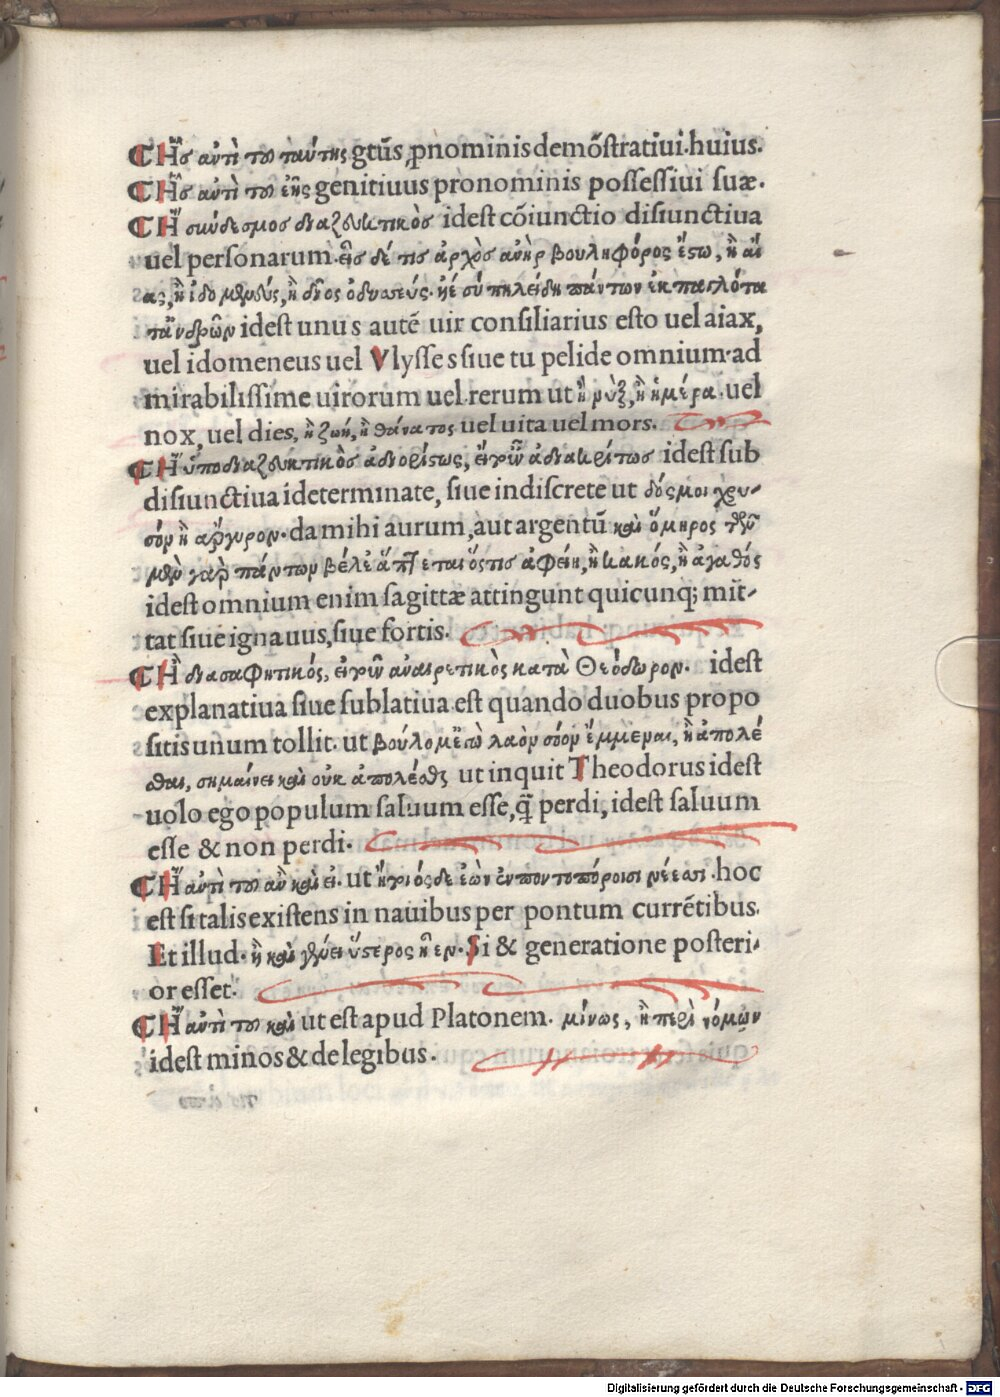 ¶Ἧς ἀντὶ τοῦ ταύτης gtūs ꝓnominis demōstratiui.huius.
¶Ἧς ἀντὶ τοῦ ἑῆς genitiuus pronominis possessiui suæ.
¶Ἢ σύνδεσμος διαζευκτικὸς idest cōiunctio disiunctiua
uel personarum.εἷς δέ τις ἀρχὸς ἀνὴρ βουληφόρος ἔστω, ἢ αἴ
ας, ἢ ἰδομενεύς, ἢ δῖος ὀδυσσεύς. ἠέ σύ πηλείδη πάντων ἐκπαγλότα
τ᾽ἀνδρῶν idest unus autē uir consiliarius esto uel aiax,
uel idomeneus uel Vlysses siue tu pelide omnium·ad
mirabilissime uirorum uel.rerum ut ἢ νὺξ, ἢ ἡμέρα.uel
nox, uel dies, ἢ ζωή, ἢ θάνατος uel uita uel mors.
¶Ἢ ὑποδιαζευκτικὸς ἀδιορίστως, εἴτουν ἀδιακρίτως idest sub
disiunctiua ideterminate, siue indiscrete ut δός μοι χρυ-
σόν ἢ ἄργυρον·da mihi aurum,aut argentū καὶ ὅμηρος τῶν
μὲν γὰρ πάντων βέλε᾽ ἅπτεται ὅςτις ἀφείη, ἢ κακός, ἢ ἀγαθός
idest omnium enim sagittæ attingunt quicunq; mit-
tat siue ignauus,siue fortis.
¶Ἢ διασαφητικός, εἴτουν ἀναιρετικὸς κατὰ Θεόδωρον. idest
explanatiua siue sublatiua est quando duobus propo
sitis unum tollit. ut βούλομ᾽ ἐγὼ λαὸν σόον ἔμμεναι, ἢ ἀπολέ
σθαι, σημαίνει καὶ οὐκ ἀπολέσθαι ut inquit Theodorus idest
uolo ego populum saluum esse,q̄ perdi, idest saluum
esse & non perdi·
¶Ἢ ἀντὶ τοῦ ἂν καὶ εἰ. ut ἢ τοιόςδε ἐὼν ἐν ποντοπόροισι νέεσσι.hoc
est si talis existens in nauibus per pontum currētibus.
Et illud·ἢ καὶ γένει ὕστερος ἦεν·Si & generatione posteri-
or esset.
¶Ἢ ἀντὶ τοῦ καὶ ut est apud Platonem. μίνως, ἢ περὶ νόμων
idest minos & de legibus.
Digitalisierung gefördert durch die Deutsche Forschungsgemeinschaft - DFG